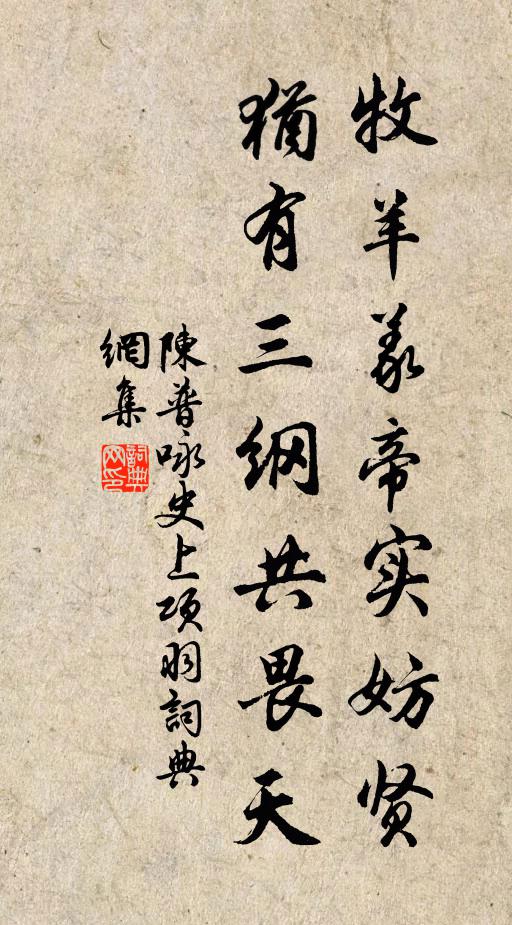 牧羊義帝实妨贤
猶有三纲共畏天
陳普咏史上項羽詞典
網集
詞典網印